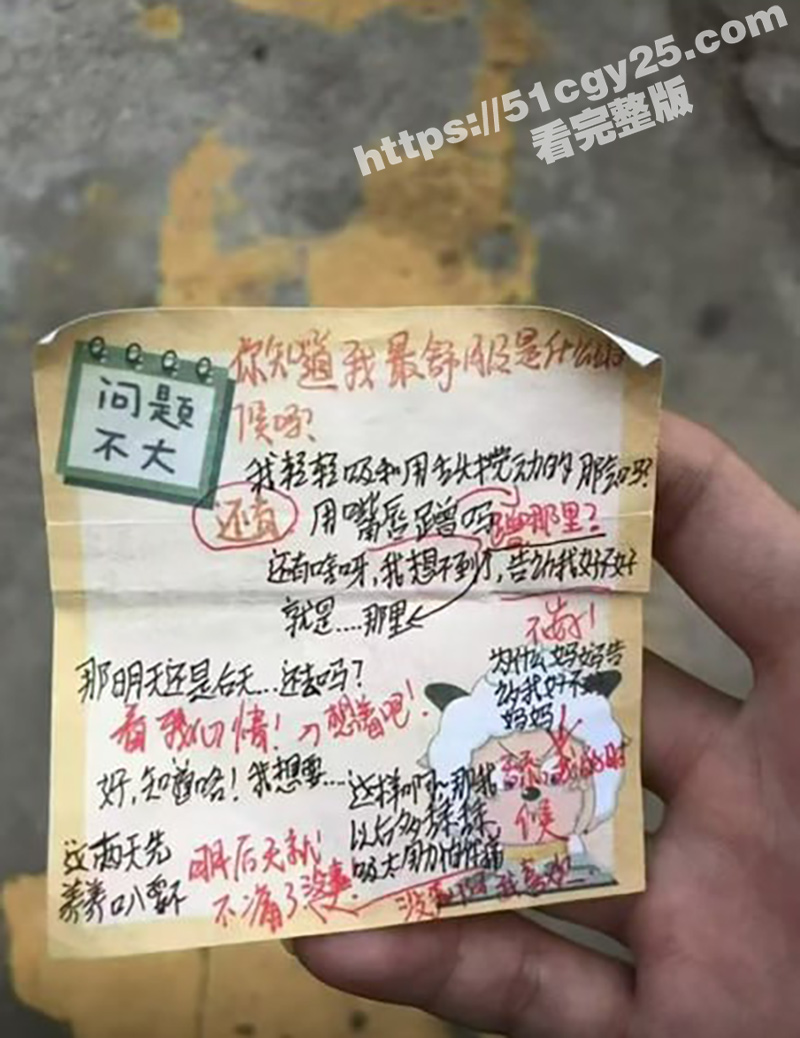 https://51cgy25.com
看完整版
问题
不大
你知道我最舒服是什么时
候呀?
我轻轻吸和用舌头拨动的那刻吗?
还有 用嘴唇蹭吗 蹭那里?
还有啥呀,我想不到了,告诉我好不好
就是....那里
不告!
那明天还是后天...还去吗?
为什么妈妈告
诉我好不
妈妈
看我心情! 想着吧!
好,知道咯!我想要...
这样啊~那我
以后多揉揉
吸太用力怕你痛
的时
候
这两天先
养养
明后天就
不痛了没事